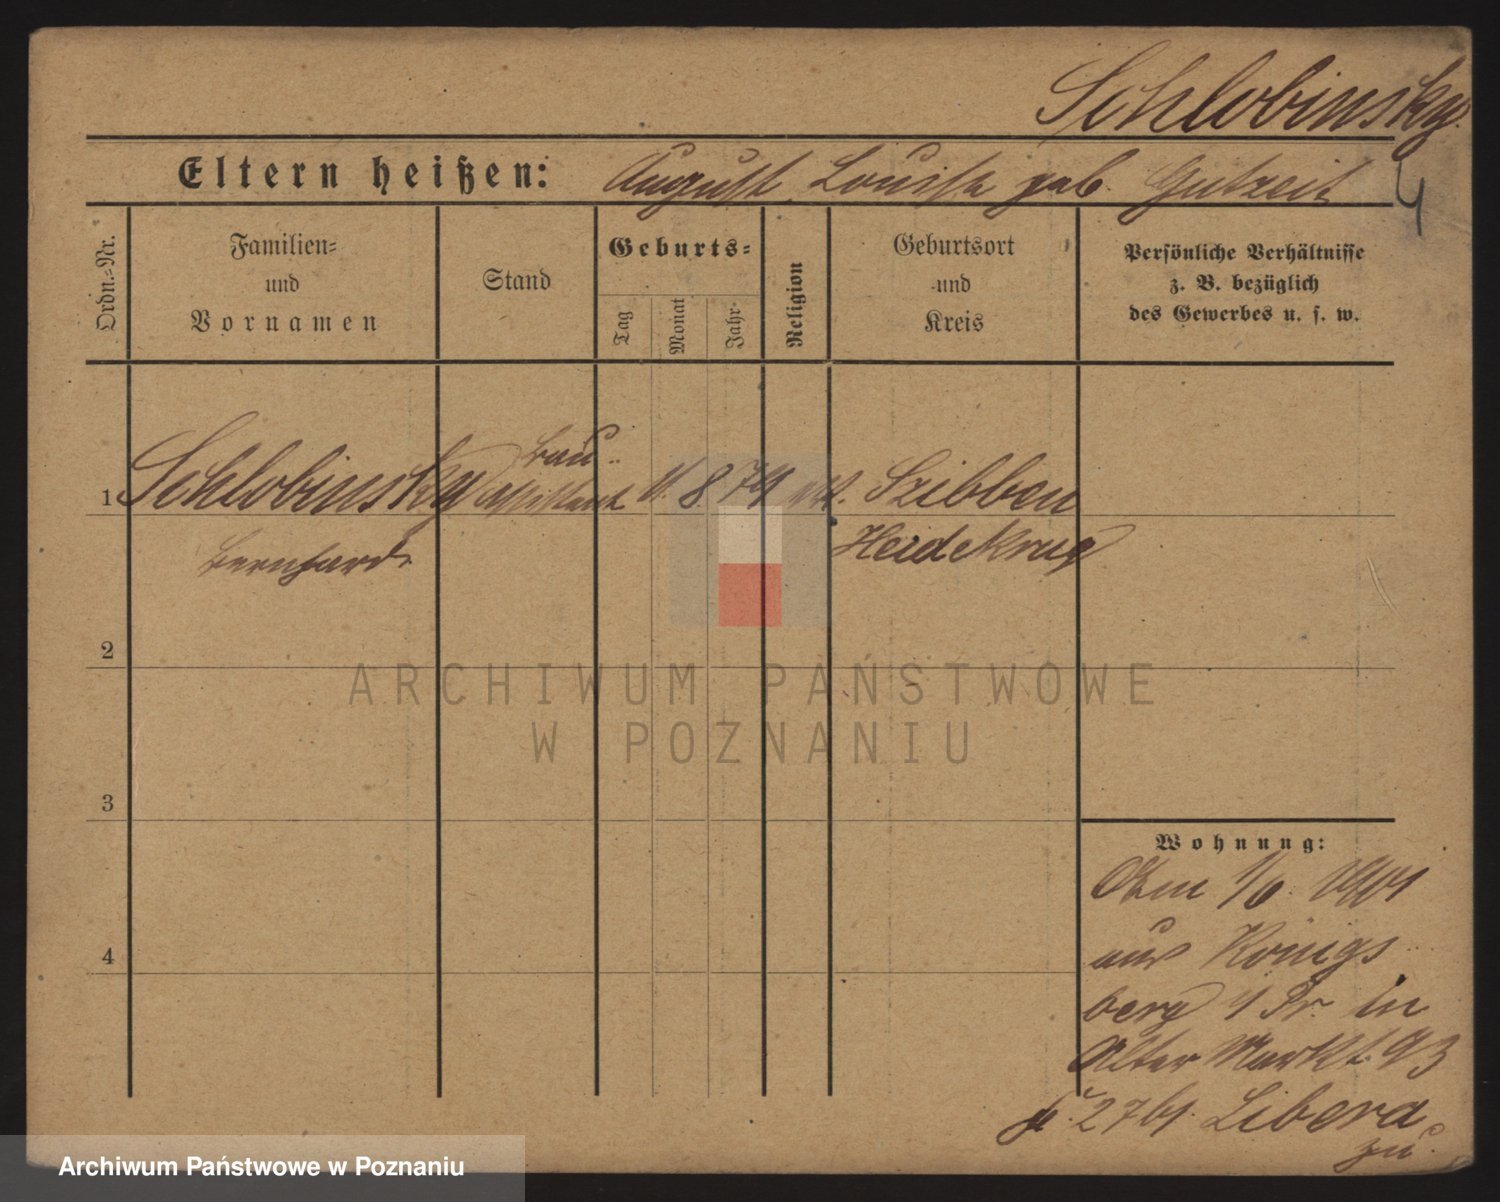 Schlobinsky.
Eltern heißen: August, Louise geb. Gutzeit
4
Ordn.-Nr.
Familien-
und
Vornamen
Stand
Geburts-
Tag
Monat
Jahr
Religion
Geburtsort
und
Kreis
Persönliche Verhältnisse
z. B. bezüglich
des Gewerbes u. s. w.
Bau-
1 Schlobinsky Assistent 8 79 Szibben
Bernhard Heidekrug
2
3
4
ARCHIWUM PAŃSTWOWE
W POZNANIU
Wohnung:
1/6. 1901
aus Königs
berg i Pr. in
Alter Markt 93
2761. Libera
zu.
Archiwum Państwowe w Poznaniu